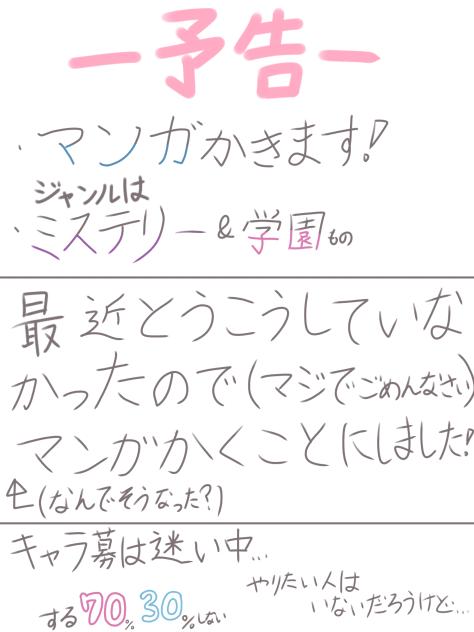 ー予告ー
・マンガかきます!
ジャンルは
・ミステリー & 学園もの
最近とうこうしていな
かったので(マジでごめんなさい)
マンガかくことにしました!
↑(なんでそうなった?)
キャラ募は迷い中...
やりたい人は
いないだろうけど...
する70% 30%しない